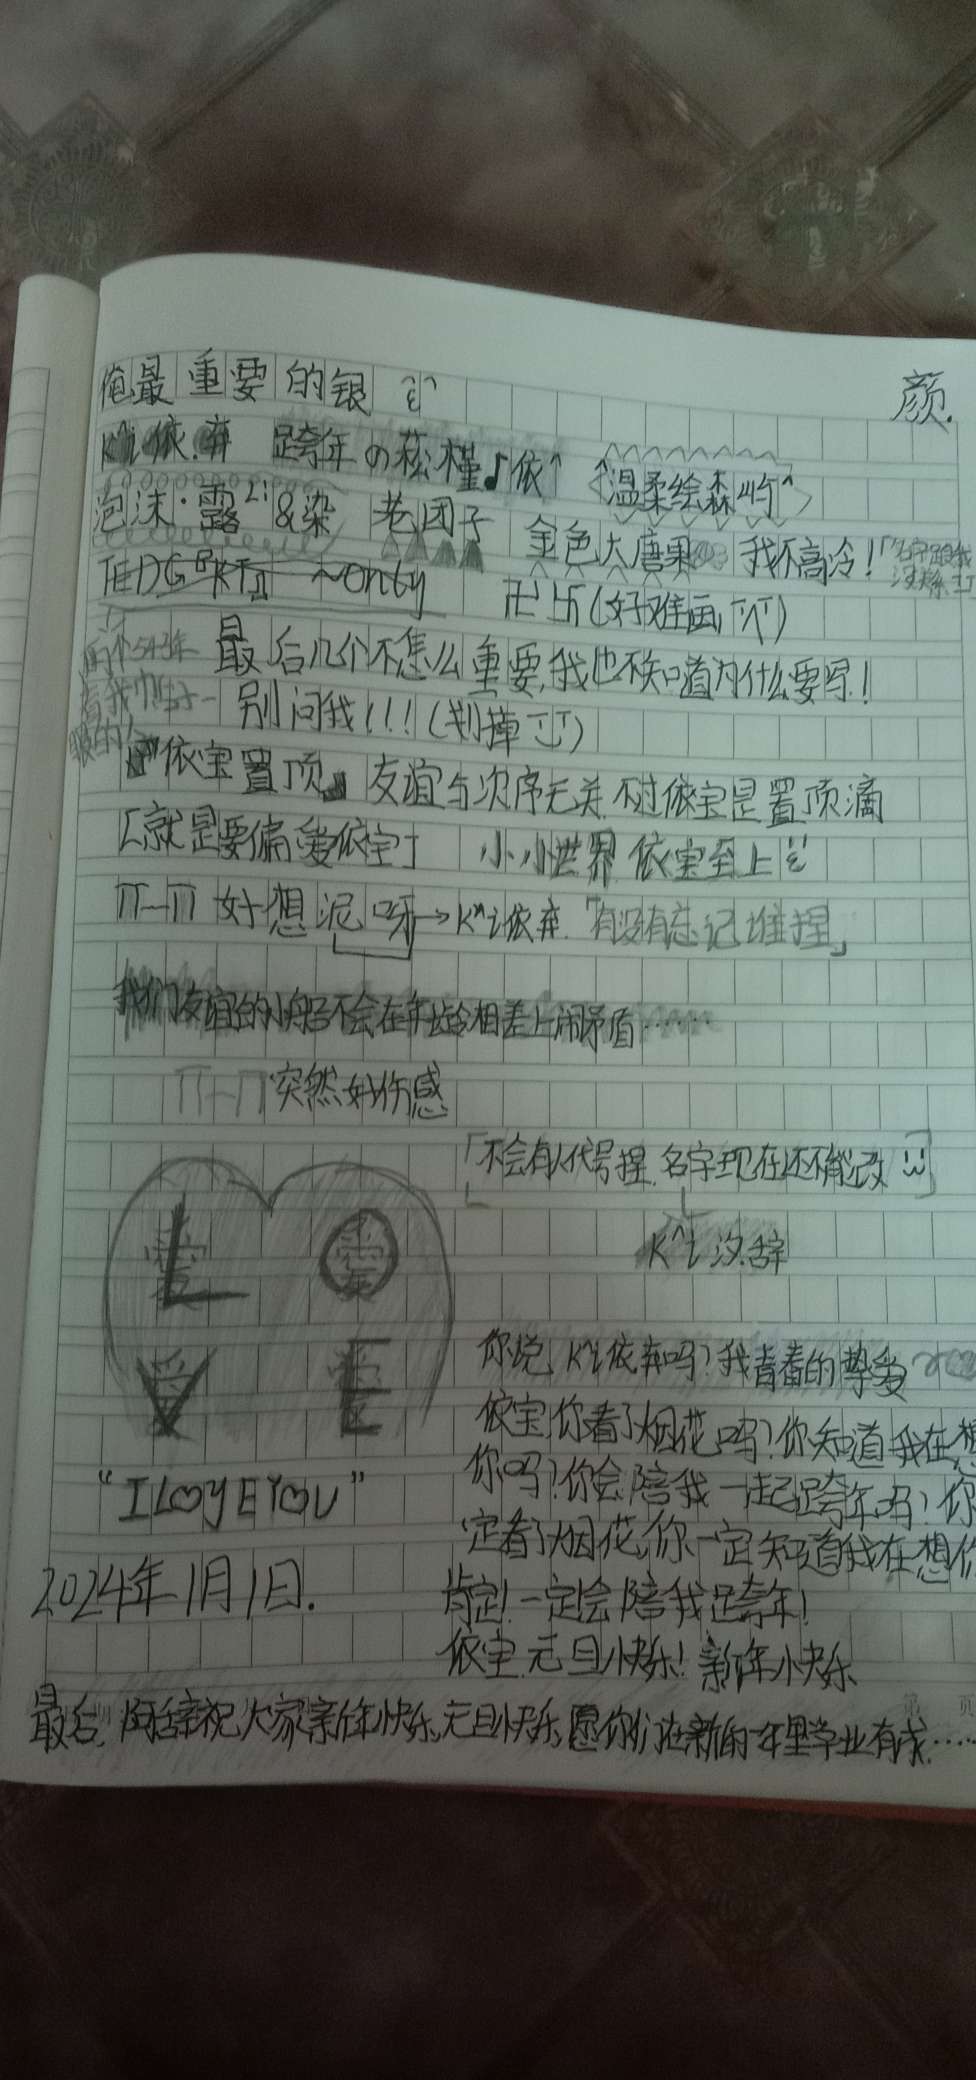 俺最重要的银
颜.
K^i依.弃 跨年の菘槿♪依^ 温柔绘森屿^
泡沫·露Li&染 老团子 金色大唐果 我不高冷!
~only 卍 卐(好难画)
最后几个不怎么重要,我也不知道为什么要写!
别问我!!!(划掉)
『依宝置顶』 友谊与次序无关.不过依宝是置顶滴
「就是要偏爱依宝」 小小世界 依宝至上
好想泥呀→K^i依弃.「有没有忘记堆捏」
我们友谊的小船不会在年龄相差上闹矛盾……
突然好伤感
「不会有人代号捏.名字现在还不能改
K^i汐.辞
LOVE
你说,K^i依弃吗?我青春的挚爱
依宝,你看了烟花吗?你知道我在想
你吗?你会陪我一起跨年吗?你
定看了烟花,你一定知道我在想你
肯定!一定会陪我跨年!
依宝.元旦快乐!新年快乐
"I LOVE YOU"
2024年1月1日.
最后,阿辞祝大家新年快乐,元旦快乐,愿你们在新的一年里学业有成……
第 页